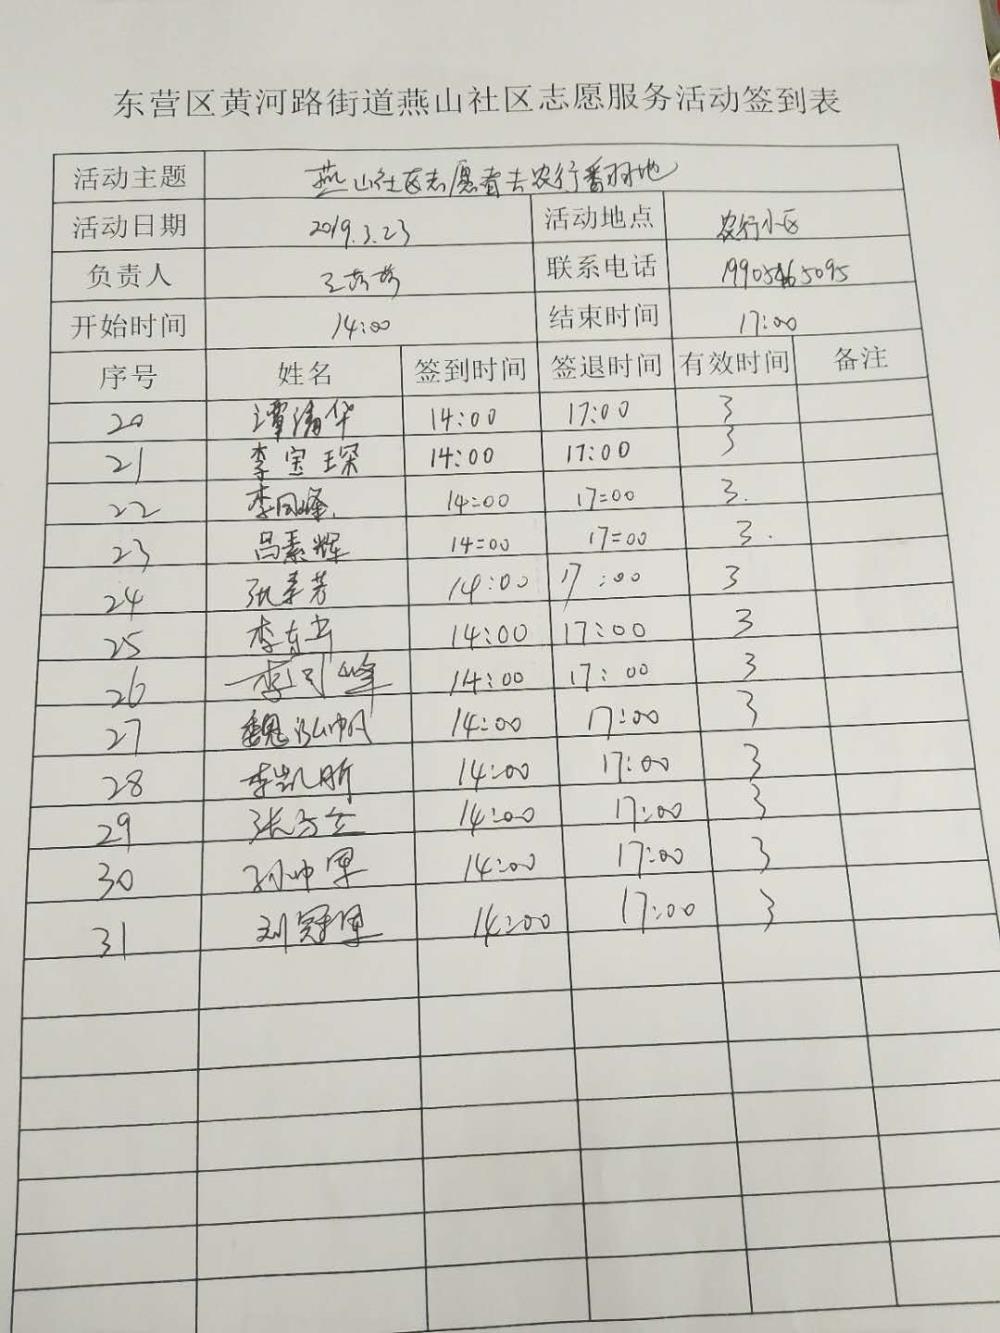 东营区黄河路街道燕山社区志愿服务活动签到表
活动主题 燕山社区志愿者去农行翻地
活动日期 2019.3.23 活动地点 农行小区
负责人 王芳芳 联系电话 19905465095
开始时间 14:00 结束时间 17:00
序号 姓名 签到时间 签退时间 有效时间 备注
20 谭清华 14:00 17:00 3
21 李宝琛 14:00 17:00 3
22 李风峰 14:00 17:00 3.
23 吕素辉 14:00 17:00 3.
24 张素芳 14:00 17:00 3
25 李东 14:00 17:00 3
26 李 峰 14:00 17:00 3
27 魏泓帆 14:00 17:00 3
28 李凯昕 14:00 17:00 3
29 张 14:00 17:00 3
30 孙帅军 14:00 17:00 3
31 刘冠军 14:00 17:00 3